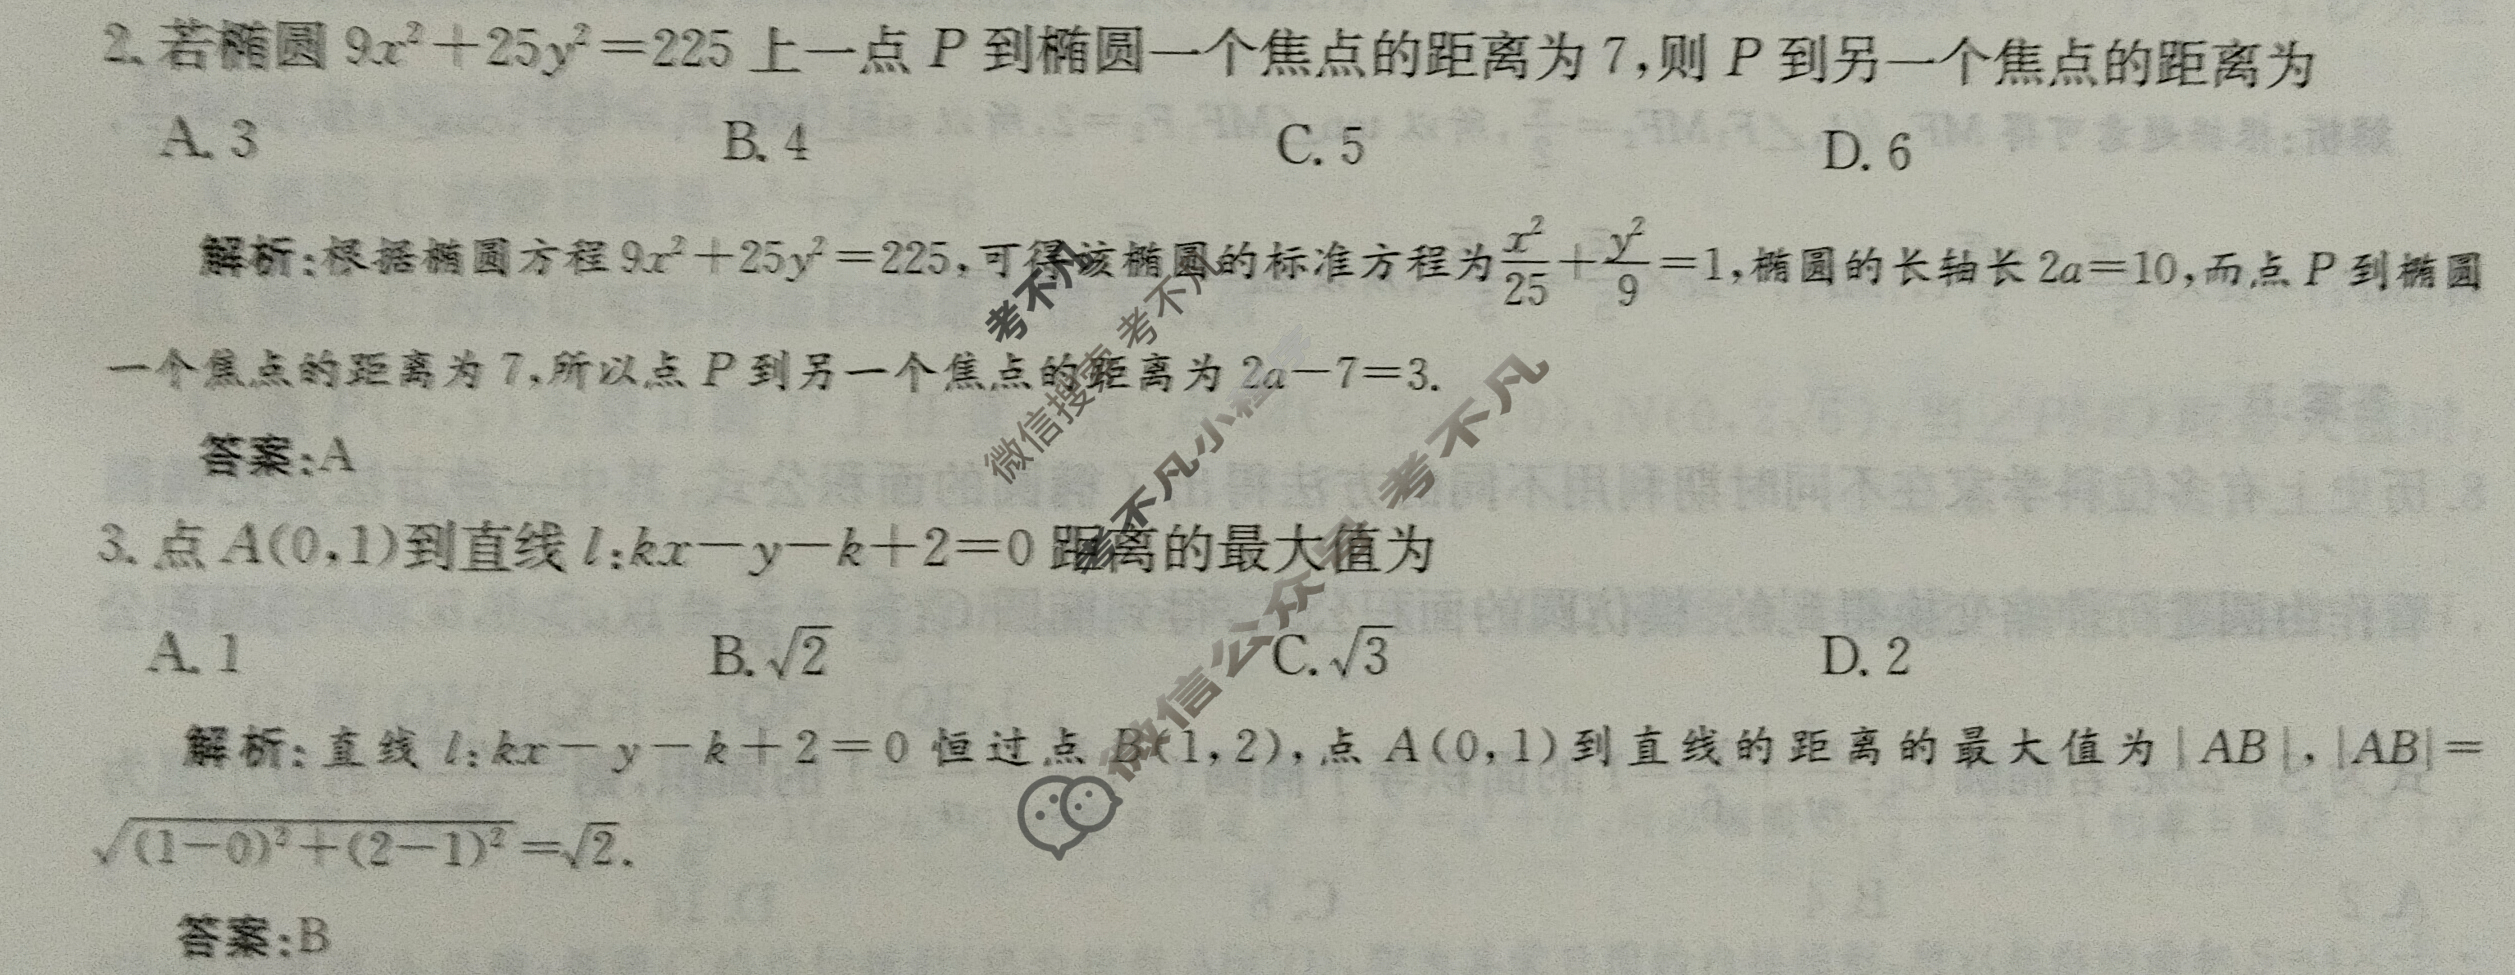 2. 若椭圆 9x²+25y²=225 上一点 P 到椭圆一个焦点的距离为 7,则 P 到另一个焦点的距离为
A. 3 B. 4 C. 5 D. 6
解析:根据椭圆方程 9x²+25y²=225,可得该椭圆的标准方程为 x²/25+y²/9=1,椭圆的长轴长 2a=10,而点 P 到椭圆
一个焦点的距离为 7,所以点 P 到另一个焦点的距离为 2a-7=3.
答案:A
3. 点 A(0,1)到直线 l:kx-y-k+2=0 距离的最大值为
A. 1 B. √2 C. √3 D. 2
解析:直线 l:kx-y-k+2=0 恒过点 B(1,2),点 A(0,1)到直线的距离的最大值为|AB|,|AB|=
√((1-0)²+(2-1)²)=√2.
答案:B
考不凡
微信搜索 考不凡
考不凡小程序
微信公众号 考不凡